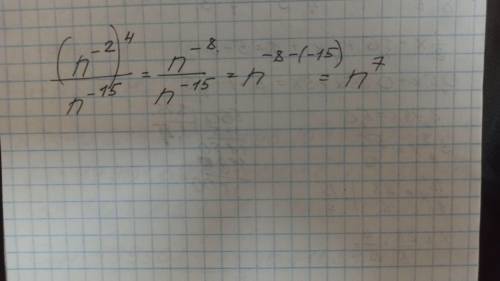 (n⁻²)⁴/n⁻¹⁵ = n⁻⁸/n⁻¹⁵ = n⁻⁸⁻⁽⁻¹⁵⁾ = n⁷